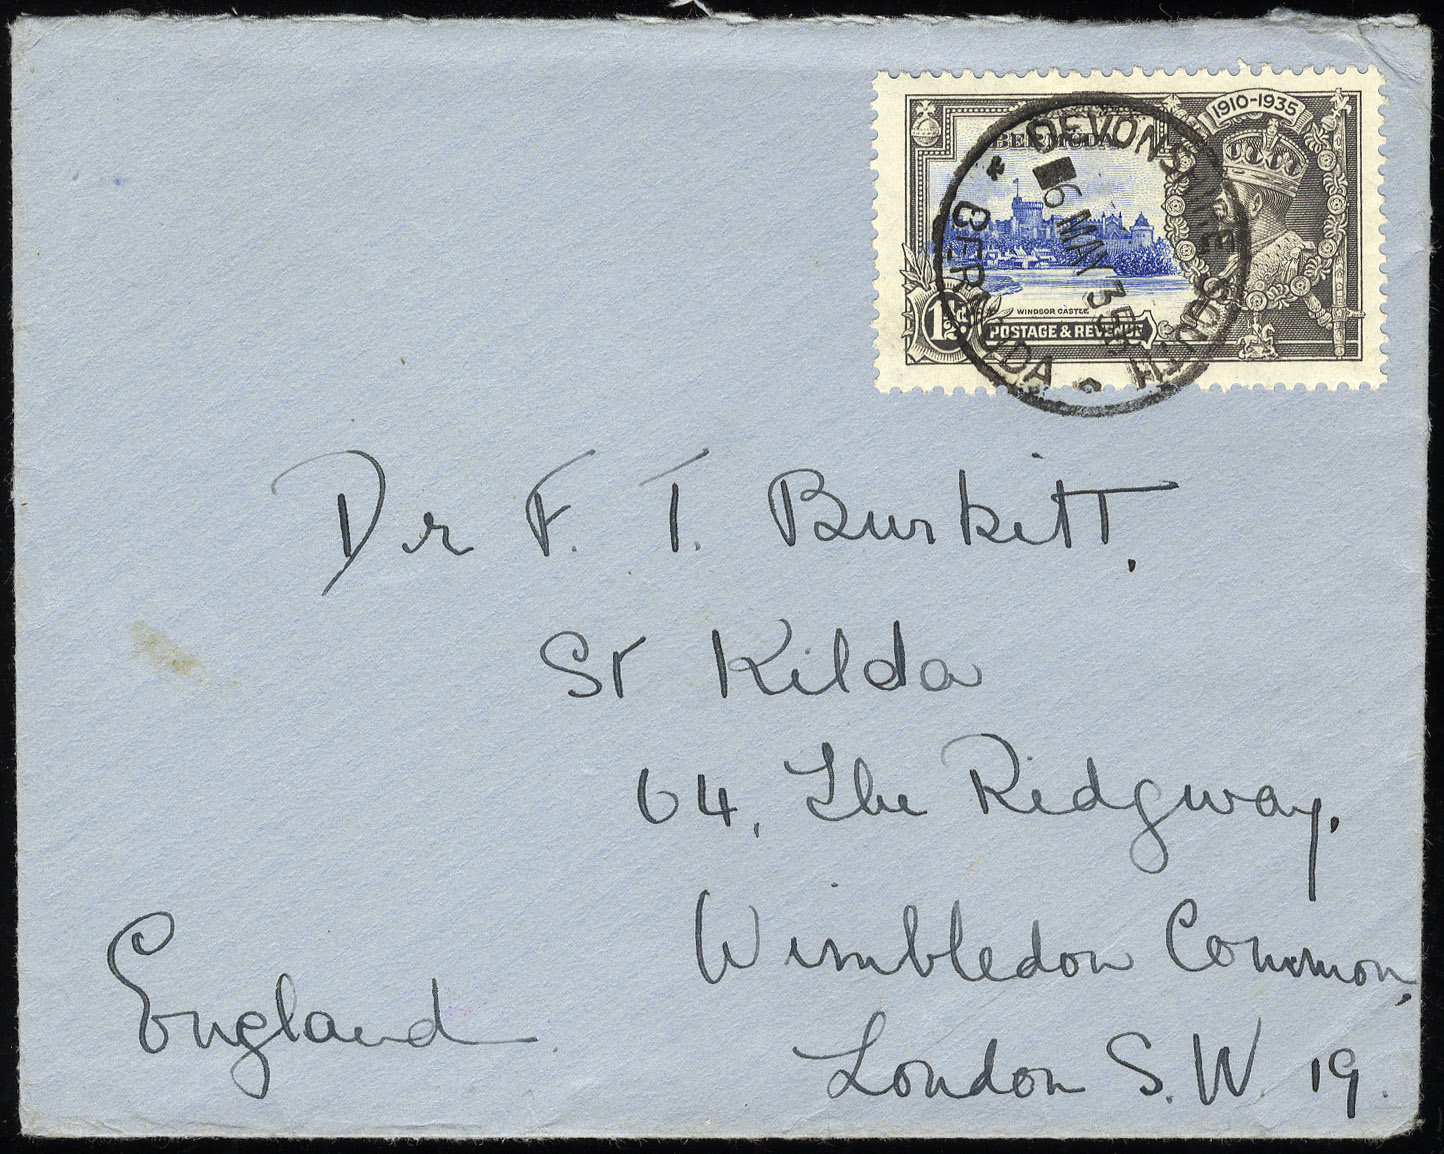 1910-1935
BERMUDA
WINDSOR CASTLE
1½d
POSTAGE & REVENUE
DEVONSHIRE SOUTH
6 MAY 35
BERMUDA
Dr F. T. Burkitt,
St Kilda
64, The Ridgway,
Wimbledon Common,
London S.W. 19.
England